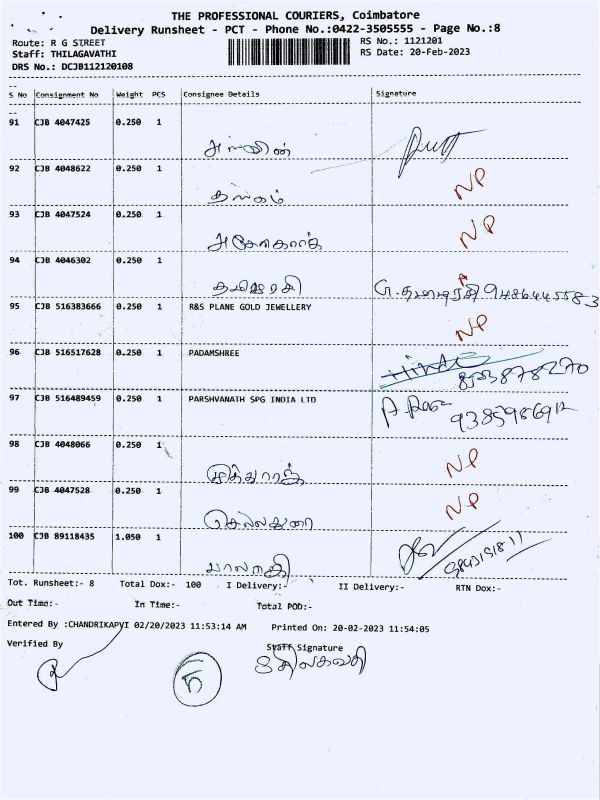 THE PROFESSIONAL COURIERS, Coimbatore
Delivery Runsheet - PCT - Phone No.:0422-3505555 - Page No.:8
Route: R G STREET
Staff: THILAGAVATHI
DRS No.: DCJB112120108
RS No.: 1121201
RS Date: 20-Feb-2023
S No Consignment No Weight PCS Consignee Details Signature
91 CJB 4047425 0.250 1
92 CJB 4048622 0.250 1 NP
தங்கம்
93 CJB 4047524 0.250 1 NP
94 CJB 4046302 0.250 1
தமிழரசி 9486445583
95 CJB 516383666 0.250 1 R&S PLANE GOLD JEWELLERY NP
96 CJB 516517628 0.250 1 PADAMSHREE
97 CJB 516489459 0.250 1 PARSHVANATH SPG INDIA LTD
98 CJB 4048066 0.250 1 NP
முத்துராஜ்
99 CJB 4047528 0.250 1 NP
செல்லதுரை
100 CJB 89118435 1.050 1
பாலாஜி
Tot. Runsheet:- 8 Total Dox:- 100 I Delivery:- II Delivery:- RTN Dox:-
Out Time:- In Time:- Total POD:-
Entered By :CHANDRIKAPVI 02/20/2023 11:53:14 AM Printed On: 20-02-2023 11:54:05
Verified By Staff Signature
திலகவதி